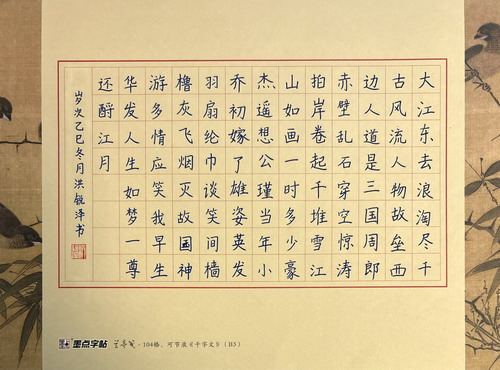 大江东去浪淘尽千
古风流人物故垒西
边人道是三国周郎
赤壁乱石穿空惊涛
拍岸卷起千堆雪江
山如画一时多少豪
杰遥想公瑾当年小
乔初嫁了雄姿英发
羽扇纶巾谈笑间樯
橹灰飞烟灭故国神
游多情应笑我早生
华发人生如梦一尊
还酹江月
岁次乙巳冬月洪锐泽书
墨点字帖 · 104格，可节录《千字文》（B5）